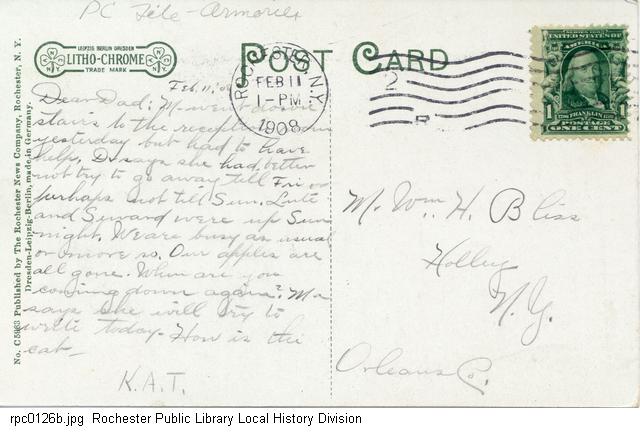 PC File - Armories
LEIPZIG BERLIN DRESDEN
LITHO-CHROME
TRADE MARK
POST CARD
ROCHESTER, N.Y.
FEB 11
1-PM
1908
2
SERIES 1902
UNITED STATES OF AMERICA
1
FRANKLIN
POSTAGE
ONE CENT
No. C5963 Published by The Rochester News Company, Rochester, N. Y.
Dresden-Leipzig-Berlin, made in Germany.
Feb. 11, '08
Dear Dad: M. went down
stairs to the reception room
yesterday but had to have
help. Dr. says she had better
not try to go away till Fri or
perhaps not till Sun. Lute
and Seward were up Sun
night. We are busy as usual
or more so. Our apples are
all gone. When are you
coming down again? Ma
says she will try to
write today. How is the
cat—
K.A.T.
Mr. Wm. H. Bliss
Holley
N.Y.
Orleans Co.
rpc0126b.jpg Rochester Public Library Local History Division